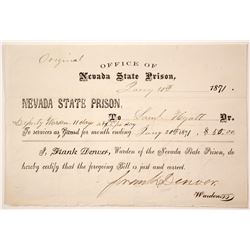 Original
OFFICE OF
Nevada State Prison,
Jany 20th 1871.
NEVADA STATE PRISON,
To Saml Wyatt Dr.
Deputy Warden 11 days at per day
To services as Guard for month ending Jany 20th 1871, $
I, Frank Denver, Warden of the Nevada State Prison, do
hereby certify that the foregoing Bill is just and correct.
Frank Denver
Warden